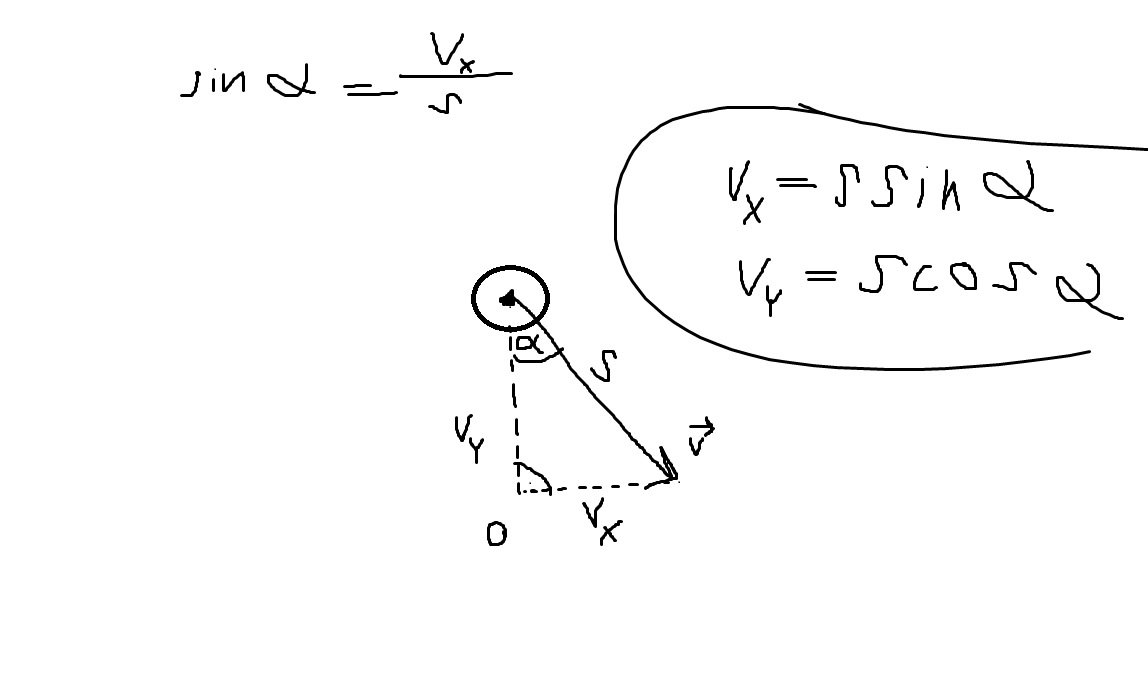 sin α = Vx / s
Vx = S Sin α
Vy = S cos α
α
S
Vy
v⃗
Vx
0